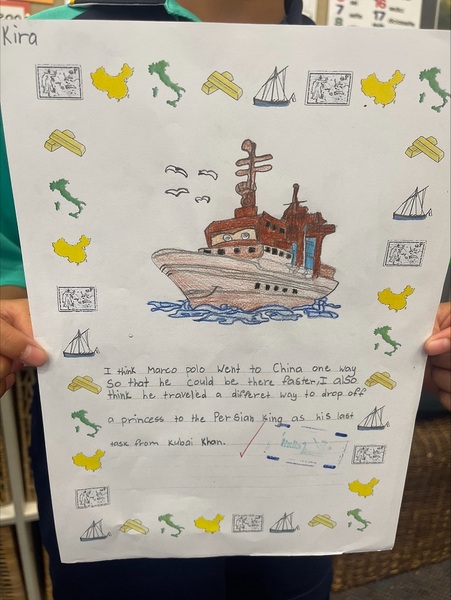 Kira
I think Marco polo Went to China one way
So that he could be there faster, I also
think he traveled a differet way to drop off
a princess to the Persian King as his last
task from Kubai Khan.